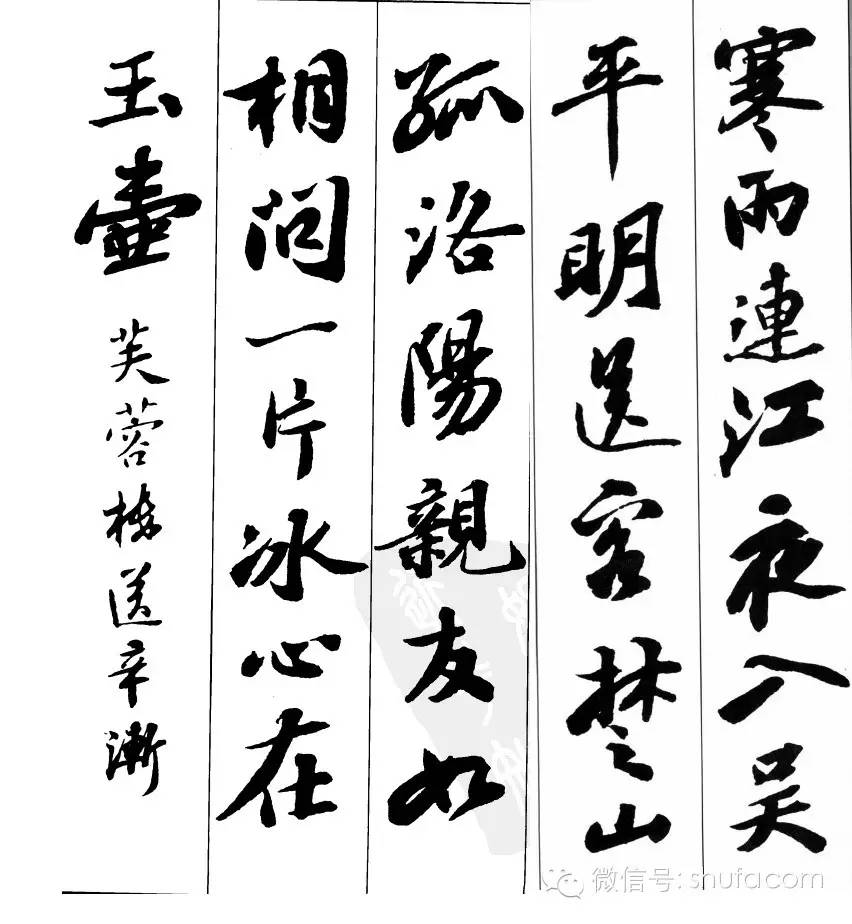 寒雨連江夜入吴
平明送客楚山
孤洛陽親友如
相问一片冰心在
玉壺
芙蓉楼送辛漸
微信号: shufacom